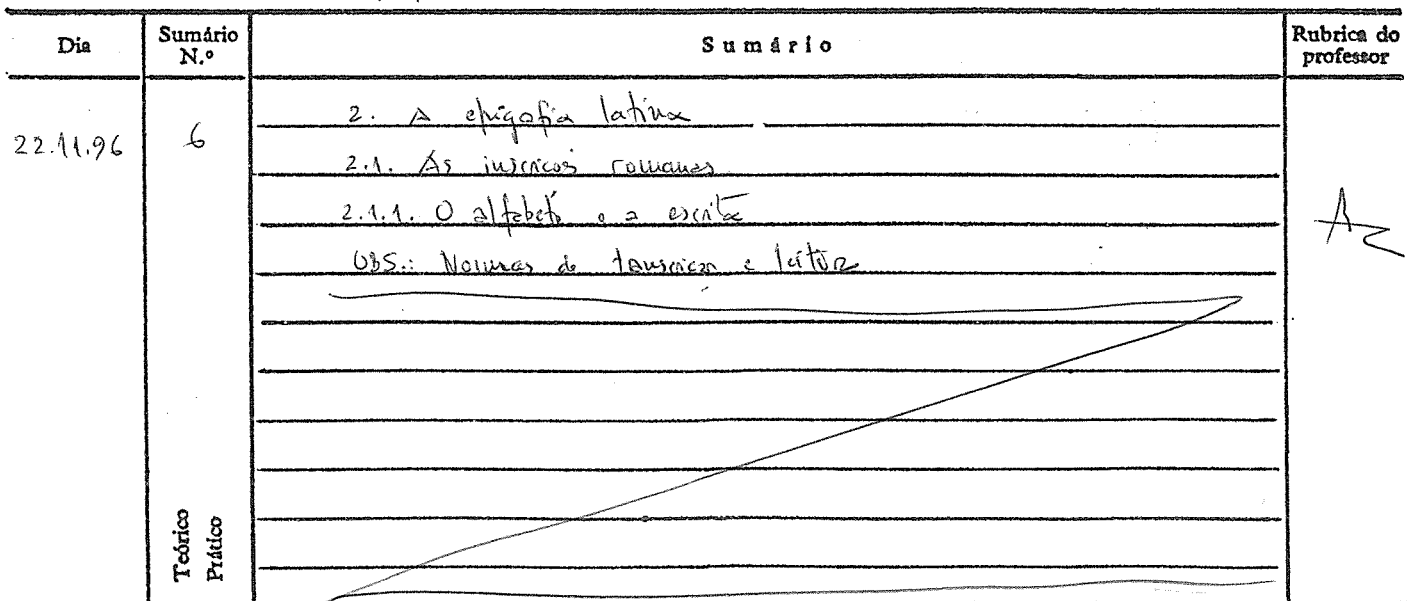 Dia
Sumário N.º
Sumário
Rubrica do professor
22.11.96
6
2. A epigrafia latina
2.1. As inscrições romanas
2.1.1. O alfabeto e a escrita
OBS.: Normas de transcrição e leitura
Teórico
Prático